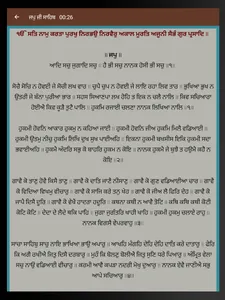 ਜਪੁ ਜੀ ਸਾਹਿਬ 00:26
ੴ ਸਤਿ ਨਾਮੁ ਕਰਤਾ ਪੁਰਖੁ ਨਿਰਭਉ ਨਿਰਵੈਰੁ ਅਕਾਲ ਮੂਰਤਿ ਅਜੂਨੀ ਸੈਭੰ ਗੁਰ ਪ੍ਰਸਾਦਿ ॥
॥ ਜਪੁ ॥
ਆਦਿ ਸਚੁ ਜੁਗਾਦਿ ਸਚੁ ॥ ਹੈ ਭੀ ਸਚੁ ਨਾਨਕ ਹੋਸੀ ਭੀ ਸਚੁ ॥੧॥
ਸੋਚੈ ਸੋਚਿ ਨ ਹੋਵਈ ਜੇ ਸੋਚੀ ਲਖ ਵਾਰ ॥ ਚੁਪੈ ਚੁਪ ਨ ਹੋਵਈ ਜੇ ਲਾਇ ਰਹਾ ਲਿਵ ਤਾਰ ॥ ਭੁਖਿਆ ਭੁਖ ਨ
ਉਤਰੀ ਜੇ ਬੰਨਾ ਪੁਰੀਆ ਭਾਰ ॥ ਸਹਸ ਸਿਆਣਪਾ ਲਖ ਹੋਹਿ ਤ ਇਕ ਨ ਚਲੈ ਨਾਲਿ ॥ ਕਿਵ ਸਚਿਆਰਾ
ਹੋਈਐ ਕਿਵ ਕੂੜੈ ਤੁਟੈ ਪਾਲਿ ॥ ਹੁਕਮਿ ਰਜਾਈ ਚਲਣਾ ਨਾਨਕ ਲਿਖਿਆ ਨਾਲਿ ॥੧॥
ਹੁਕਮੀ ਹੋਵਨਿ ਆਕਾਰ ਹੁਕਮੁ ਨ ਕਹਿਆ ਜਾਈ ॥ ਹੁਕਮੀ ਹੋਵਨਿ ਜੀਅ ਹੁਕਮਿ ਮਿਲੈ ਵਡਿਆਈ ॥
ਹੁਕਮੀ ਉਤਮੁ ਨੀਚੁ ਹੁਕਮਿ ਲਿਖਿ ਦੁਖ ਸੁਖ ਪਾਈਅਹਿ ॥ ਇਕਨਾ ਹੁਕਮੀ ਬਖਸੀਸ ਇਕਿ ਹੁਕਮੀ ਸਦਾ
ਭਵਾਈਅਹਿ ॥ ਹੁਕਮੈ ਅੰਦਰਿ ਸਭੁ ਕੋ ਬਾਹਰਿ ਹੁਕਮ ਨ ਕੋਇ ॥ ਨਾਨਕ ਹੁਕਮੈ ਜੇ ਬੁਝੈ ਤ ਹਉਮੈ ਕਹੈ ਨ
ਕੋਇ ॥੨॥
ਗਾਵੈ ਕੋ ਤਾਣੁ ਹੋਵੈ ਕਿਸੈ ਤਾਣੁ ॥ ਗਾਵੈ ਕੋ ਦਾਤਿ ਜਾਣੈ ਨੀਸਾਣੁ ॥ ਗਾਵੈ ਕੋ ਗੁਣ ਵਡਿਆਈਆ ਚਾਰ ॥ ਗਾਵੈ
ਕੋ ਵਿਦਿਆ ਵਿਖਮੁ ਵੀਚਾਰੁ ॥ ਗਾਵੈ ਕੋ ਸਾਜਿ ਕਰੇ ਤਨੁ ਖੇਹ ॥ ਗਾਵੈ ਕੋ ਜੀਅ ਲੈ ਫਿਰਿ ਦੇਹ ॥ ਗਾਵੈ ਕੋ
ਜਾਪੈ ਦਿਸੈ ਦੂਰਿ ॥ ਗਾਵੈ ਕੋ ਵੇਖੈ ਹਾਦਰਾ ਹਦੂਰਿ ॥ ਕਥਨਾ ਕਥੀ ਨ ਆਵੈ ਤੋਟਿ ॥ ਕਥਿ ਕਥਿ ਕਥੀ ਕੋਟੀ
ਕੋਟਿ ਕੋਟਿ ॥ ਦੇਦਾ ਦੇ ਲੈਦੇ ਥਕਿ ਪਾਹਿ ॥ ਜੁਗਾ ਜੁਗੰਤਰਿ ਖਾਹੀ ਖਾਹਿ ॥ ਹੁਕਮੀ ਹੁਕਮੁ ਚਲਾਏ ਰਾਹੁ ॥
ਨਾਨਕ ਵਿਗਸੈ ਵੇਪਰਵਾਹੁ ॥੩॥
ਸਾਚਾ ਸਾਹਿਬੁ ਸਾਚੁ ਨਾਇ ਭਾਖਿਆ ਭਾਉ ਅਪਾਰੁ ॥ ਆਖਹਿ ਮੰਗਹਿ ਦੇਹਿ ਦੇਹਿ ਦਾਤਿ ਕਰੇ ਦਾਤਾਰੁ ॥ ਫੇਰਿ
ਕਿ ਅਗੈ ਰਖੀਐ ਜਿਤੁ ਦਿਸੈ ਦਰਬਾਰੁ ॥ ਮੁਹੌ ਕਿ ਬੋਲਣੁ ਬੋਲੀਐ ਜਿਤੁ ਸੁਣਿ ਧਰੇ ਪਿਆਰੁ ॥ ਅੰਮ੍ਰਿਤ ਵੇਲਾ
ਸਚੁ ਨਾਉ ਵਡਿਆਈ ਵੀਚਾਰੁ ॥ ਕਰਮੀ ਆਵੈ ਕਪੜਾ ਨਦਰੀ ਮੋਖੁ ਦੁਆਰੁ ॥ ਨਾਨਕ ਏਵੈ ਜਾਣੀਐ ਸਭੁ
ਆਪੇ ਸਚਿਆਰੁ ॥੪॥